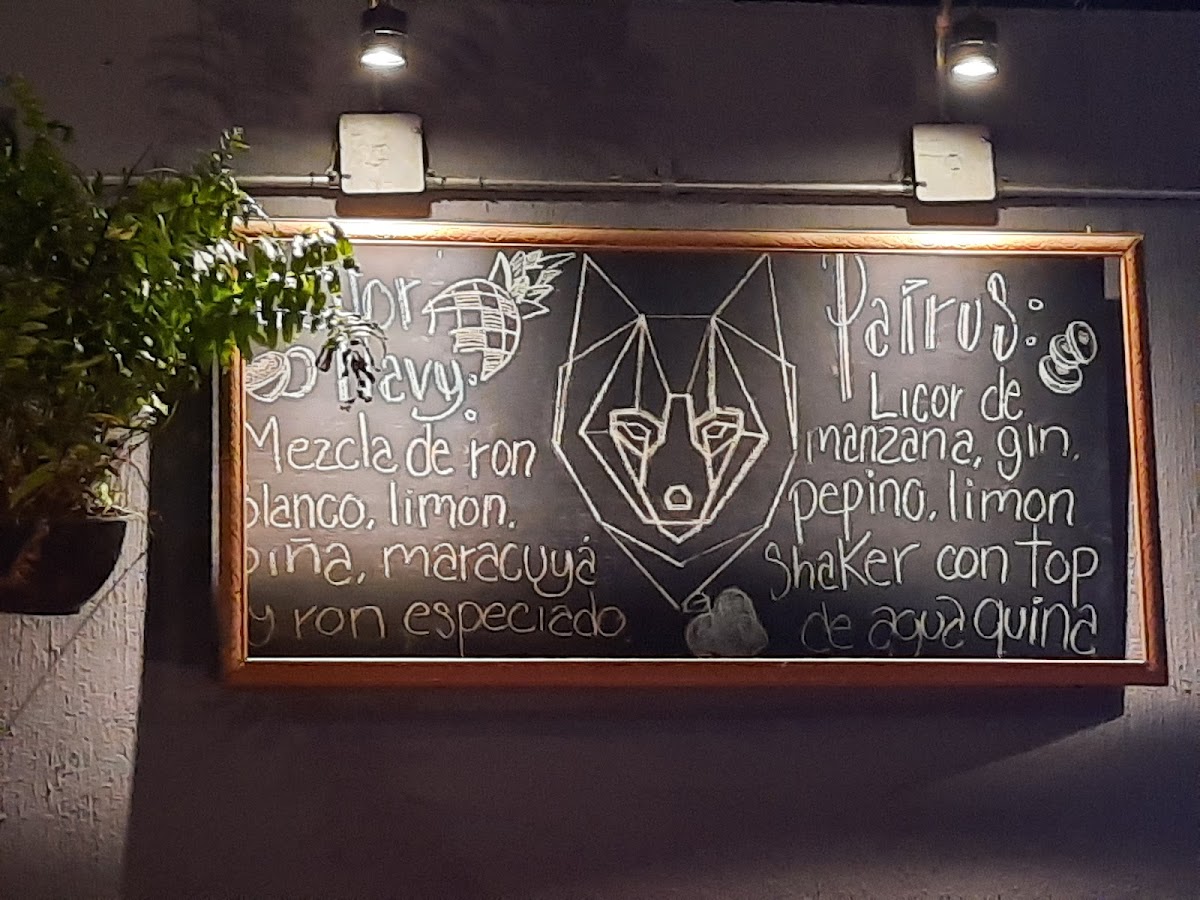 Navy:
Mezcla de ron
blanco, limon,
piña, maracuyá
y ron especiado
Patrus:
Licor de
manzana, gin,
pepino, limon
Shaker con Top
de agua quina